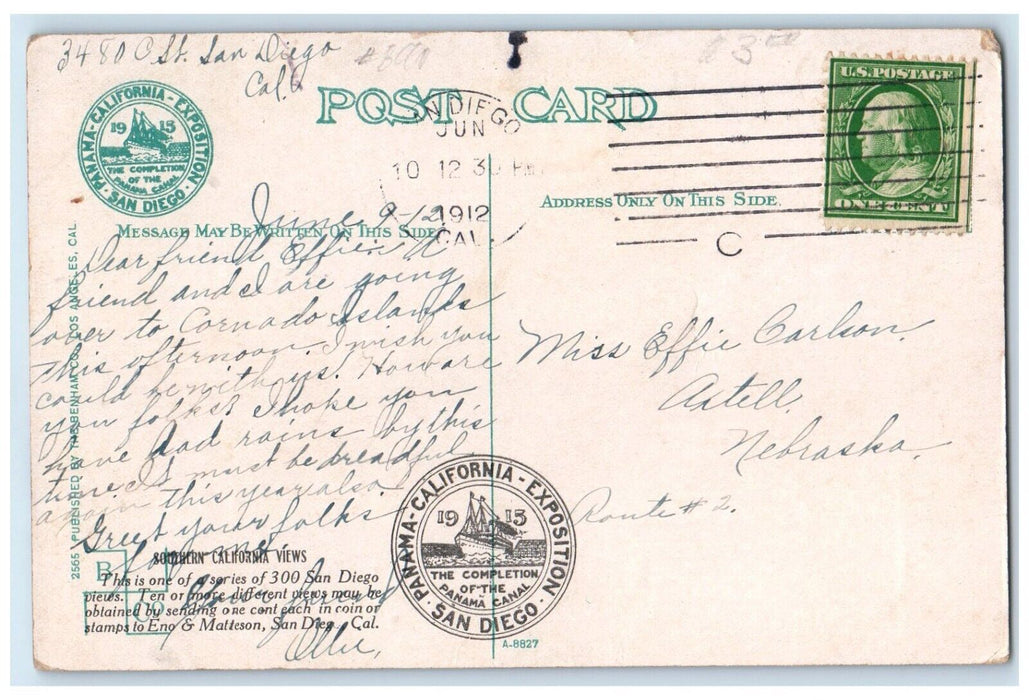 3480 C St. San Diego
Cal.
$3.00
POST CARD
PANAMA-CALIFORNIA-EXPOSITION
1915
THE COMPLETION
OF THE
PANAMA CANAL
SAN DIEGO
SAN DIEGO
JUN
10 12 30 PM
1912
CAL.
C
U.S. POSTAGE
ONE CENT
ADDRESS ONLY ON THIS SIDE.
MESSAGE MAY BE WRITTEN ON THIS SIDE
June 9-12
Dear friend Effie: A
friend and I are going
over to Cornado Islands
this afternoon. I wish you
could be with us. How are
you folks? I hope you
have had rains by this
time. It must be dreadful
again this year also.
Greet your folks
for me.
Ollie,
Miss Effie Carlson.
Axtell,
Nebraska.
Route #2.
2565 PUBLISHED BY THE BENHAM CO., LOS ANGELES, CAL.
SOUTHERN CALIFORNIA VIEWS
This is one of a series of 300 San Diego
views. Ten or more different views may be
obtained by sending one cent each in coin or
stamps to Eno & Matteson, San Diego, Cal.
PANAMA-CALIFORNIA-EXPOSITION
1915
THE COMPLETION
OF THE
PANAMA CANAL
SAN DIEGO
A-8827